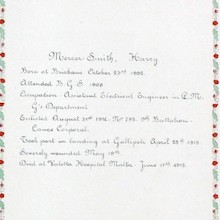 Mercer-Smith, Harry
Born at Brisbane October 23rd 1888.
Attended B.G.S. 1900
Occupation Assistant Electrical Engineer in P.M.
G's Department
Enlisted August 21st 1914. No 798. 9th Battalion.
Lance Corporal.
Took part in landing at Gallipoli April 25th 1915.
Severely wounded May 19th.
Died at Valetta Hospital Malta. June 11th 1915.